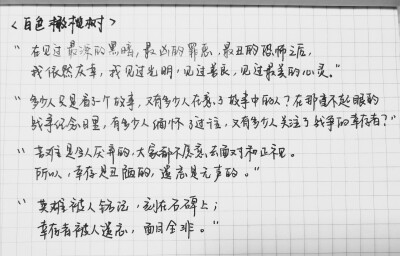 <白色橄榄树>
“在见过最深的黑暗,最凶的罪恶,最丑的恐怖之后,
我依然庆幸,我见过光明,见过善良,见过最美的心灵。”
“多少人只是看了一个故事,又有多少人在意了故事中的人?在那毫不起眼的
战争纪念日里,有多少人缅怀了过往,又有多少人关注了战争的幸存者?”
“苦难是令人厌弃的,大家都不愿意去面对和正视。
所以,幸存是丑陋的,遗忘是无声的。”
“英雄被人铭记,刻在石碑上;
幸存者被人遗忘,面目全非。”